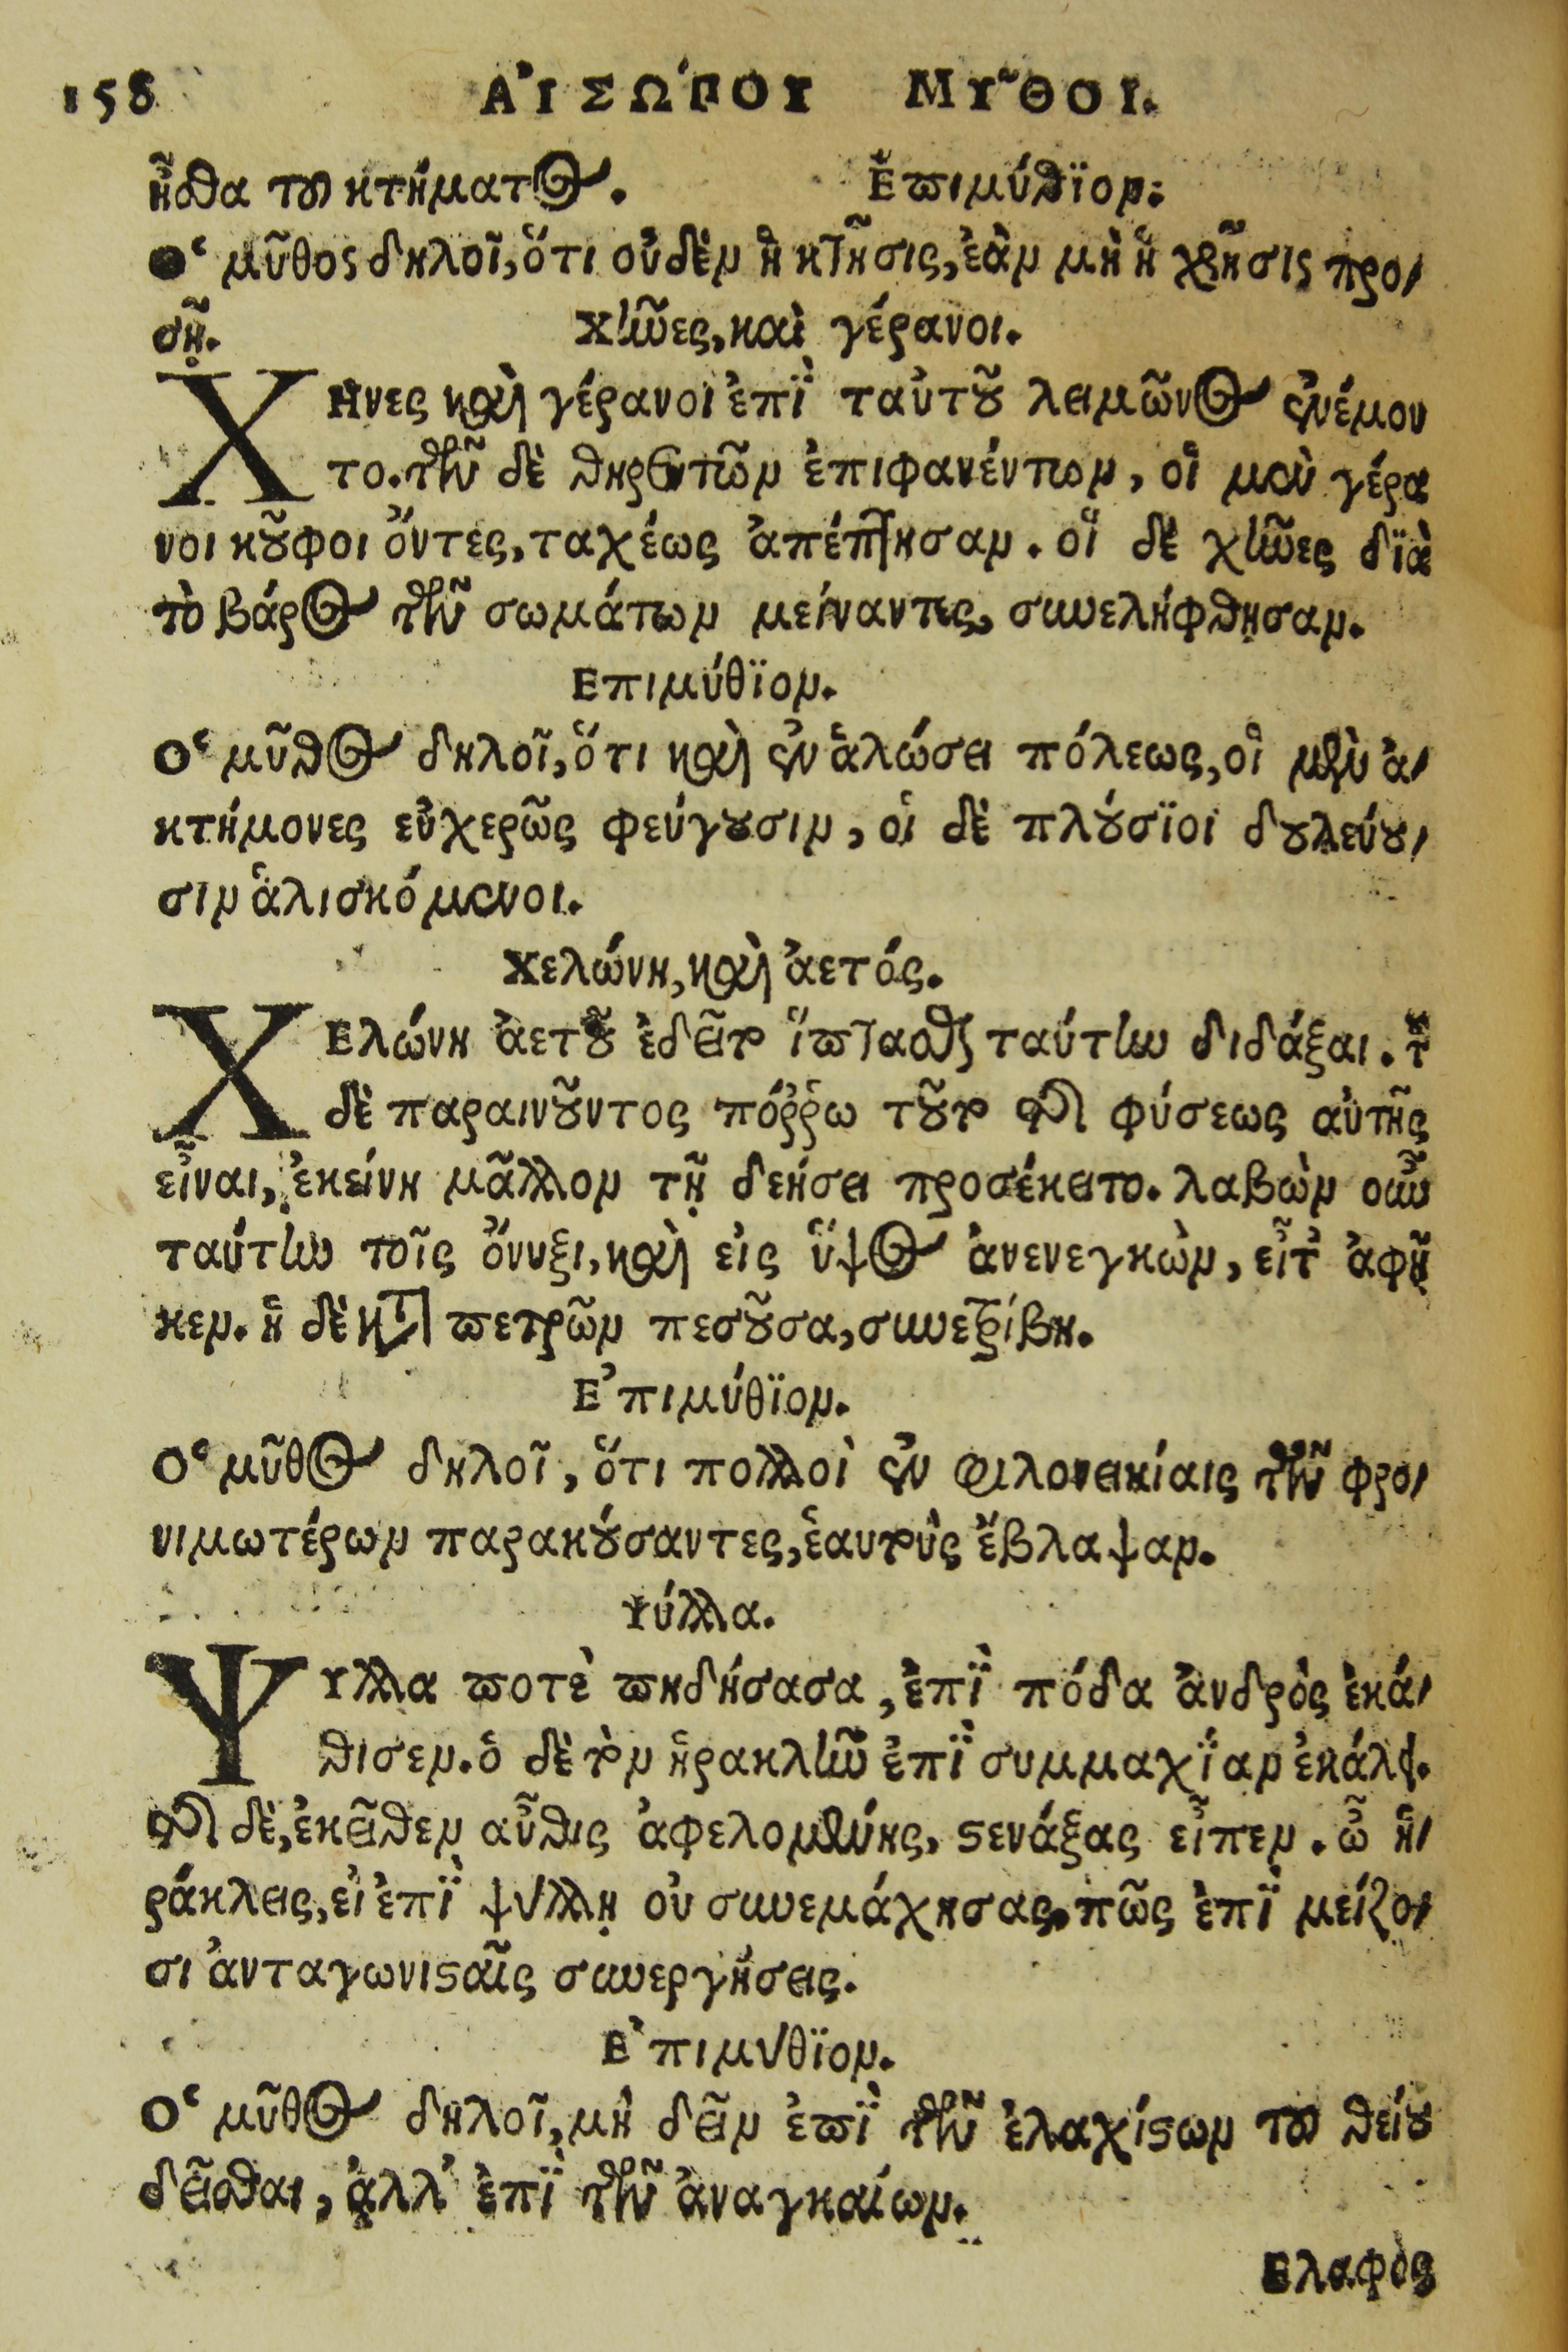 158 ΑἸΣΩ´ΠΟΥ ΜΥ῀ΘΟΙ.
ᾖσθα τοῦ κτήματος. Ἐπιμύθϊον.
Ο῾ μῦθος δηλοῖ, ὅτι οὐδὲν ἡ κτῆσις, ἐὰν μὴ ἡ χρῆσις προ-
σῇ. Χῆνες, καὶ γέρανοι.
ΧΗνες καὶ γέρανοι ἐπῒ ταὐτοῦ λειμῶνος ἐνέμον
το. τῶν δὲ θηρευτῶν ἐπιφανέντων, οἱ μὲν γέρα
νοι κοῦφοι ὄντες, ταχέως ἀπέπτησαν. οἱ δὲ χῆνες δϊὰ
τὸ βάρος τῶν σωμάτων μείναντες, συνελήφθησαν.
Επιμύθϊον.
Ο῾ μῦθος δηλοῖ, ὅτι καὶ ἐν ἁλώσει πόλεως, οἱ μὲν ἀ-
κτήμονες εὐχερῶς φεύγουσιν, οἱ δὲ πλούσϊοι δουλεύου-
σιν ἁλισκόμενοι.
Χελώνη, καὶ ἀετός.
ΧΕλώνη ἀετοῦ ἐδεῖτο ἵπτασθαι ταύτην διδάξαι. τοῦ
δὲ παραινοῦντος πόῤῥω τοῦτο τῆς φύσεως αὐτῆς
εἶναι, ἐκείνη μᾶλλον τῇ δεήσει προσέκειτο. λαβὼν οὖν
ταύτην τοῖς ὄνυξι, καὶ εἰς ὕψος ἀνενεγκὼν, εἶτ' ἀφῆ
κεν. ἡ δὲ κατὰ πετρῶν πεσοῦσα, συνετρίβη.
Ε᾿πιμύθϊον.
Ο῾ μῦθος δηλοῖ, ὅτι πολλοὶ ἐν φιλονεικίαις τῶν φρο-
νιμωτέρων παρακούσαντες, ἑαυτοὺς ἔβλαψαν.
Ψύλλα.
ΨΥλλα ποτὲ πηδήσασα, ἐπῒ πόδα ἀνδρὸς ἐκά-
θισεν. ὁ δὲ τὸν ἡρακλῆν ἐπῒ συμμαχΐαν ἐκάλει.
τῆς δὲ, ἐκεῖθεν αὖθις ἀφελομένης, στενάξας εἶπεν. ὦ ἥ-
ράκλεις, εἰ ἐπῒ ψύλλῃ οὐ συνεμάχησας, πῶς ἐπῒ μείζο-
σι ἀνταγωνισταῖς συνεργήσεις.
Ε᾿πιμύθϊον.
Ο῾ μῦθος δηλοῖ, μὴ δεῖν ἐπῒ τῶν ἐλαχίστων τοῦ θείου
δεῖσθαι, ἀλλ' ἐπῒ τῶν ἀναγκαίων.
Ελαφος